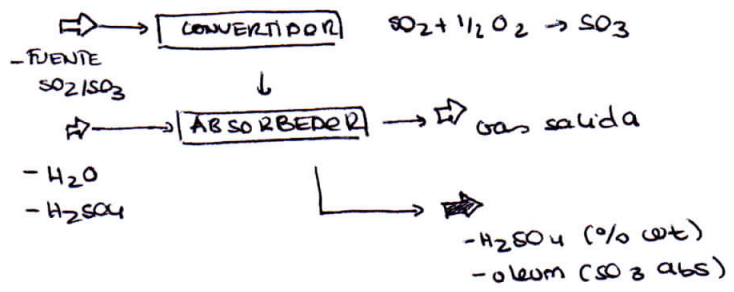 CONVERTIDOR SO2 + 1/2 O2 → SO3
- FUENTE
SO2/SO3
ABSORBEDOR Gas salida
- H2O
- H2SO4
- H2SO4 (% wt)
- oleum (SO3 abs)